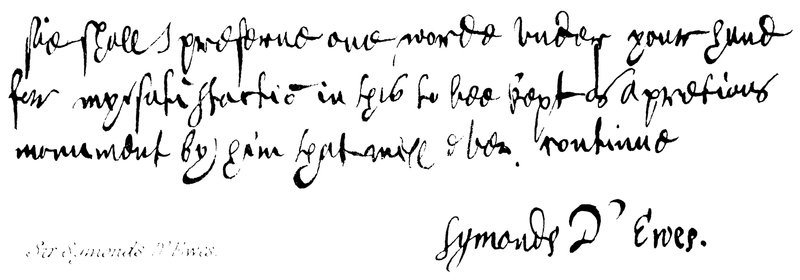 shall I preserue one worde vnder your hand
for my satisfactiō in this to bee kept as a pretious
monument by him that will euer continue
Symonds D'Ewes.
Sir Symonds D'Ewes.